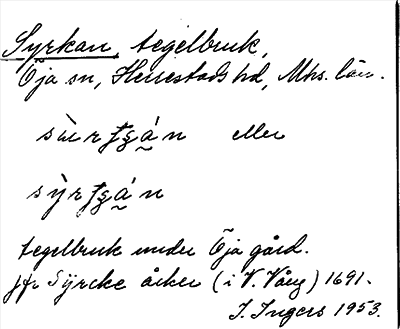 Syrkan, tegelbruk,
Öja sn, Herrestads hd, Mhs. län.
sùrʈʂá̰n eller
sỳrʈʂá̰n
tegelbruk under Öja gård.
jfr Sÿrcke åker (i V. Vång) 1691.
I. Ingers 1953.